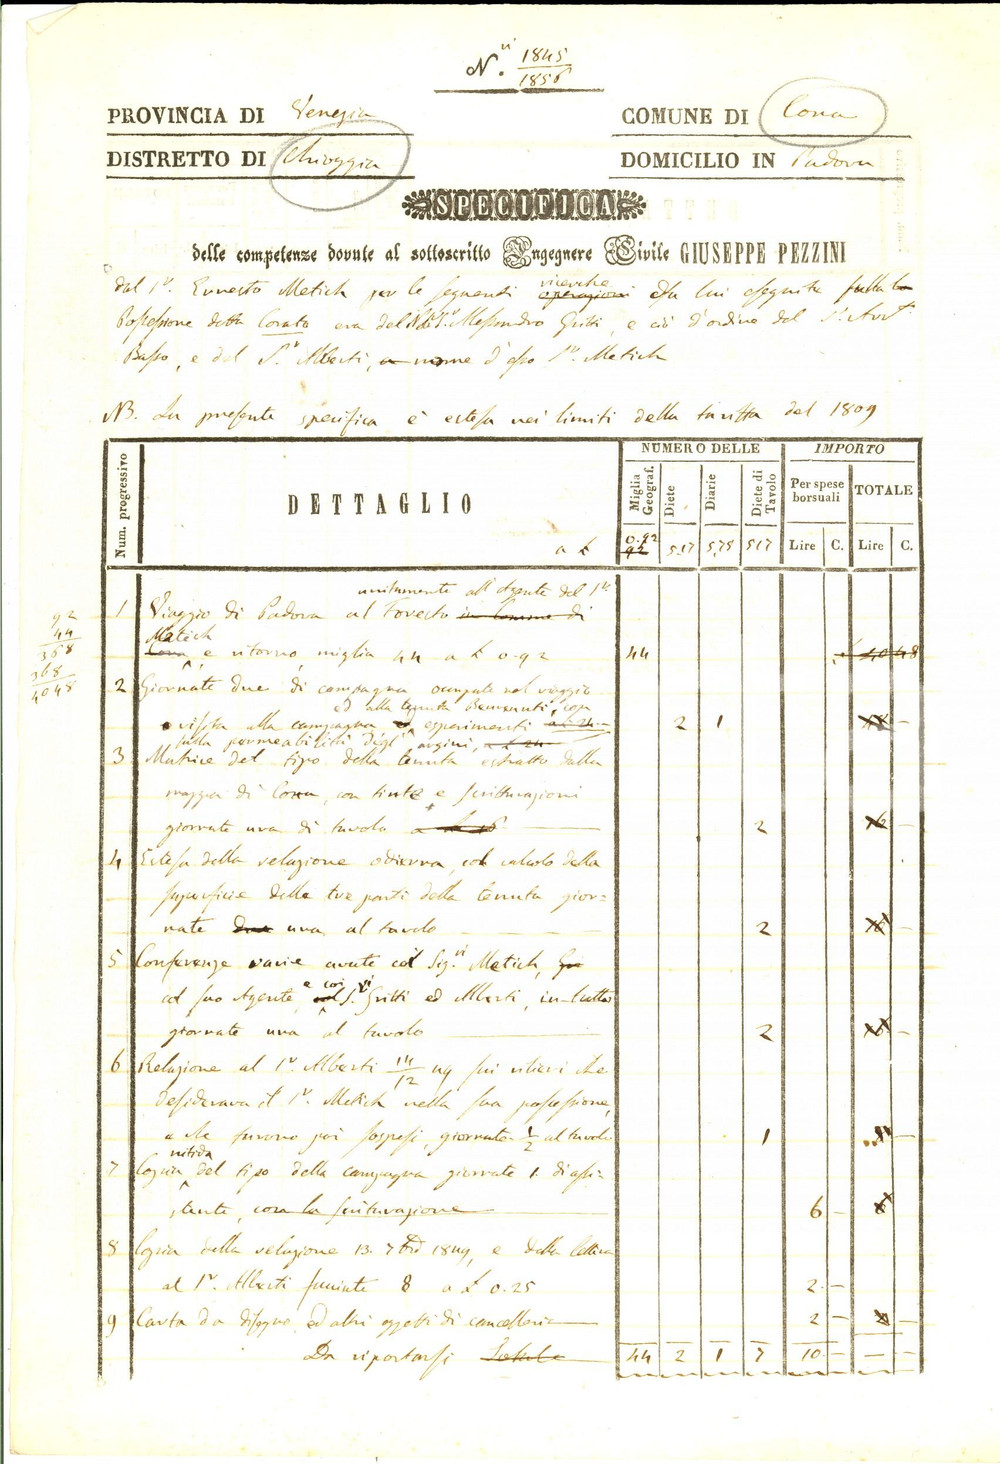 N.ri 1845/1856
PROVINCIA DI Venezia
COMUNE DI Cona
DISTRETTO DI Chioggia
DOMICILIO IN Padova
SPECIFICA
delle competenze dovute al sottoscritto Ingegnere Civile GIUSEPPE PEZZINI
dal Sr. Ernesto Metich per le seguenti ricerche operazioni da lui eseguite sulla
Possessione detta Corato era del Sr. Alessandro Gritti, e ciò d'ordine del Sr.
Basso, e del Sr. Alberti, a nome d'esso Sr. Metich
NB. La presente specifica è estesa nei limiti della tariffa del 1809
Num. progressivo
DETTAGLIO
a £
NUMERO DELLE
Miglia Geograf.
Diete
Diarie
Diete di Tavolo
IMPORTO
Per spese borsuali
TOTALE
0.92
92
5.17
5,75
517
Lire
C.
Lire
C.
92
44
368
368
4048
unitamente all'Agente del Sr.
1 Viaggio di Padova al Foresto in Comune di
Metich
Cona, e ritorno, miglia 44 a £ 0.92
44
40 48
2 Giornate due di campagna occupate nel viaggio
ed alla tenuta Benvenuti, con
e visita alla campagna ed esperimenti
sulla permeabilità degl'argini,
2
1
3 Matrice del tipo della tenuta estratto dalla
mappa di Cona, con tinte e scritturazioni
giornate una di tavolo
2
4 Estesa della relazione odierna, col calcolo della
superficie delle tre parti della tenuta gior=
nate due una al tavolo
2
5 Conferenze varie avute col Sig.ri Metich,
col suo Agente, e coi Sri. Gritti ed Alberti, in tutto
giornate una al tavolo
2
6 Relazione al Sr. Alberti 14/12 49 sui rilievi che
desiderava il Sr. Metich nella sua possessione,
e che furono poi sospesi, giornate 1/2 al tavolo
1
nitida
7 Copia del tipo della campagna giornate 1. di assi-
stente, con la scritturazione
6
8 Copia della relazione 13. 7bre 1849, e della lettera
al Sr. Alberti facciate 8 a £ 0.25
2
9 Carta da disegno, ed altri oggetti di cancelleria
2
Da riportarsi Totale
44
2
1
7
10